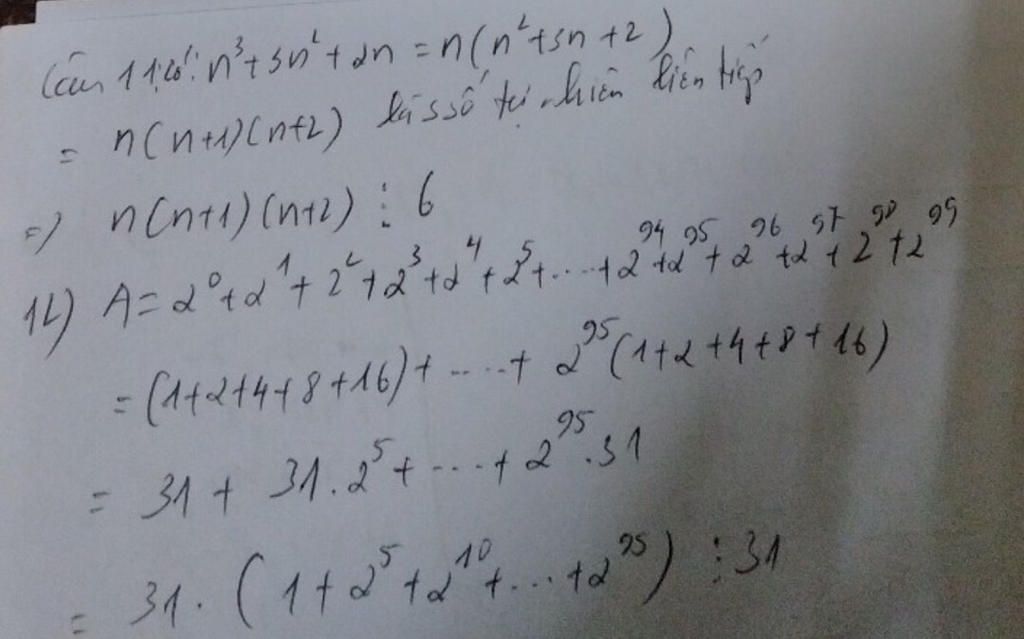 Câu 11: có: n³+3n²+2n = n(n²+3n+2)
= n(n+1)(n+2) là 3 số tự nhiên liên tiếp
=) n(n+1)(n+2) ⋮ 6
12) A = 2⁰+2¹+2²+2³+2⁴+2⁵+...+2⁹⁴+2⁹⁵+2⁹⁶+2⁹⁷+2⁹⁸+2⁹⁹
= (1+2+4+8+16)+.....+ 2⁹⁵(1+2+4+8+16)
= 31 + 31.2⁵+...+2⁹⁵.31
= 31.(1+2⁵+2¹⁰+...+2⁹⁵) ⋮ 31